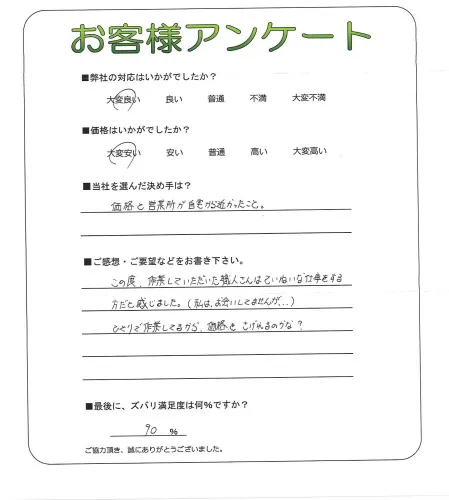 お客様アンケート
■弊社の対応はいかがでしたか？
大変良い 良い 普通 不満 大変不満
■価格はいかがでしたか？
大変安い 安い 普通 高い 大変高い
■当社を選んだ決め手は？
価格と営業所が自宅から近かったこと。
■ご感想・ご要望などをお書き下さい。
この度、作業していただいた職人さんはていねいな仕事をする
方だと感じました。（私は、お会いしてませんが…）
ひとりで作業してるから、価格も さげれるのかな？
■最後に、ズバリ満足度は何％ですか？
90 ％
ご協力頂き、誠にありがとうございました。